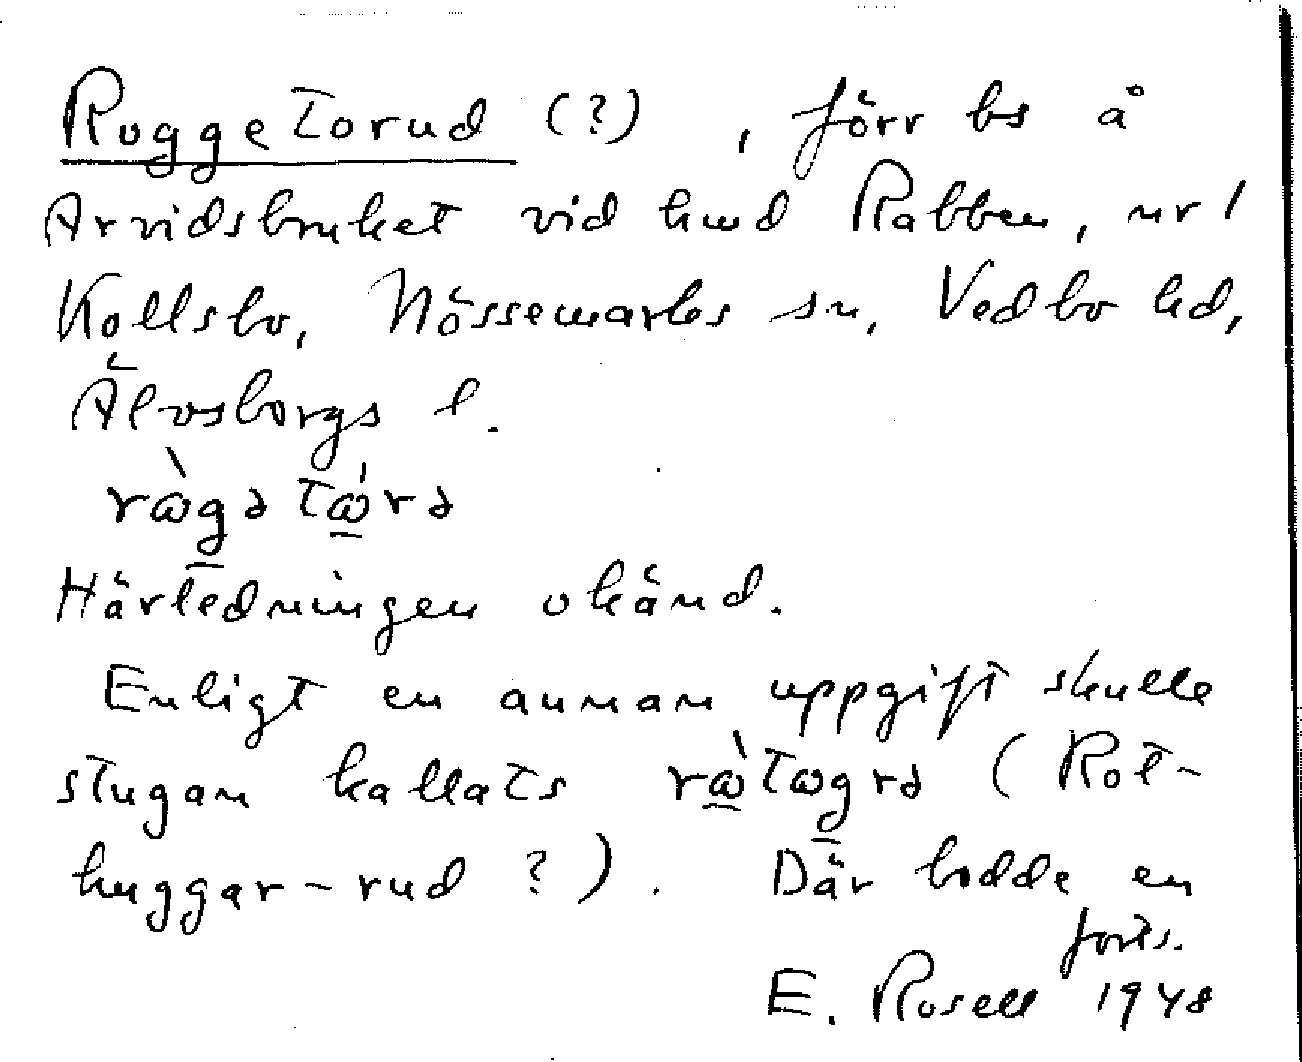 Ruggetorud (?) , förr bs å
Arvidsbruket vid hmd Rabben, nr 1
Kollsbo, Nössemarks sn, Vedbo hd,
Älvsborgs l.
rὼgə tώrə
Härledningen okänd.
Enligt en annan uppgift skulle
stugan kallats rὼtωgrə (Rot-
huggar-rud ?). Där bodde en
forts.
E. Rosell 1948